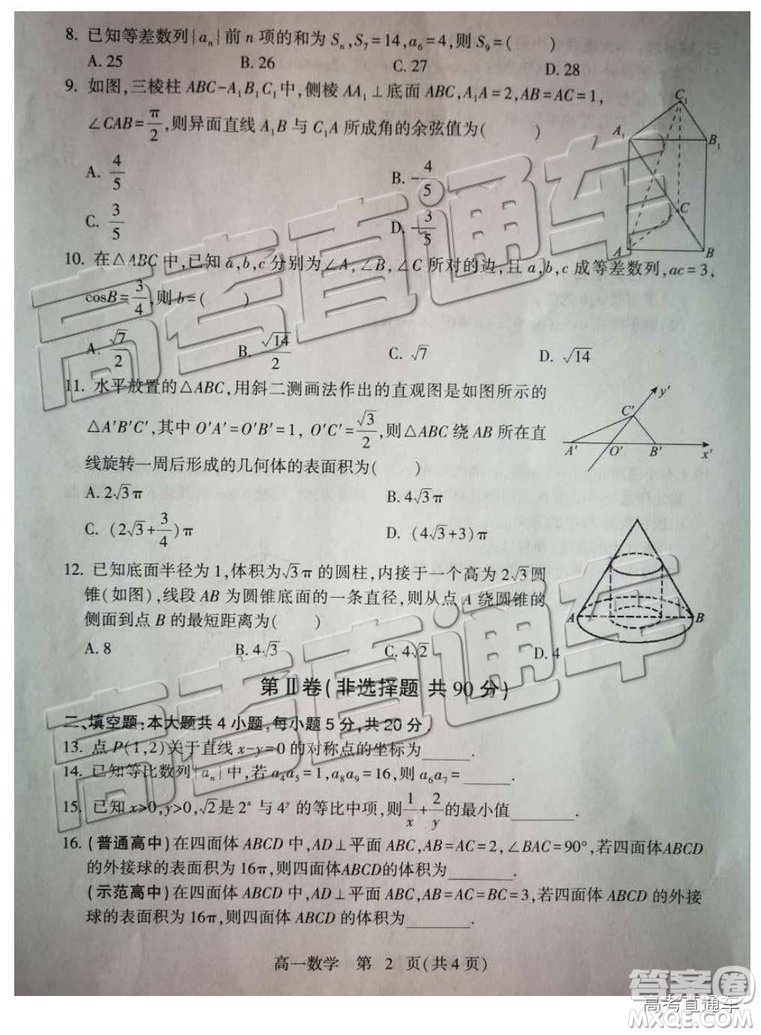 8. 已知等差数列{aₙ}前 n 项的和为 Sₙ,S₇=14,a₆=4,则 S₉=(  )
A. 25 B. 26 C. 27 D. 28
9. 如图,三棱柱 ABC-A₁B₁C₁中,侧棱 AA₁⊥底面ABC,A₁A=2,AB=AC=1,
∠CAB=π/2,则异面直线 A₁B 与 C₁A 所成角的余弦值为(  )
A. 4/5 B. -4/5
C. 3/5 D. -3/5
C₁
A₁ B₁
C
A B
10. 在△ABC 中,已知 a,b,c 分别为∠A,∠B,∠C 所对的边,且 a,b,c 成等差数列,ac=3,
cosB=3/4,则 b=(  )
A. √7/2 B. √14/2 C. √7 D. √14
11. 水平放置的△ABC,用斜二测画法作出的直观图是如图所示的
△A'B'C',其中 O'A'=O'B'=1, O'C'=√3/2,则△ABC 绕 AB 所在直
线旋转一周后形成的几何体的表面积为(  )
A. 2√3π B. 4√3π
C. (2√3+3/4)π D. (4√3+3)π
y'
C'
A' O' B' x'
12. 已知底面半径为 1,体积为√3π的圆柱,内接于一个高为 2√3圆
锥(如图),线段 AB 为圆锥底面的一条直径,则从点 A 绕圆锥的
侧面到点 B 的最短距离为(  )
A. 8 B. 4√3 C. 4√2 D. 4
A B
第Ⅱ卷(非选择题 共 90 分)
二、填空题:本大题共 4 小题,每小题 5 分,共 20 分.
13. 点 P(1,2)关于直线 x-y=0 的对称点的坐标为______.
14. 已知等比数列{aₙ}中,若 a₄a₅=1,a₈a₉=16,则 a₆a₇=______.
15. 已知 x>0,y>0,√2是 2ˣ 与 4ʸ 的等比中项,则1/x+2/y的最小值______.
16. (普通高中)在四面体 ABCD 中,AD⊥平面 ABC,AB=AC=2,∠BAC=90°,若四面体ABCD
的外接球的表面积为 16π,则四面体ABCD 的体积为______.
(示范高中)在四面体 ABCD 中,AD⊥平面 ABC,AB=AC=BC=3,若四面体 ABCD 的外接
球的表面积为 16π,则四面体 ABCD 的体积为______
高一数学 第 2 页(共 4 页)
高考直通车
高考直通车
答案圈
高考直通车
MXQE.COM